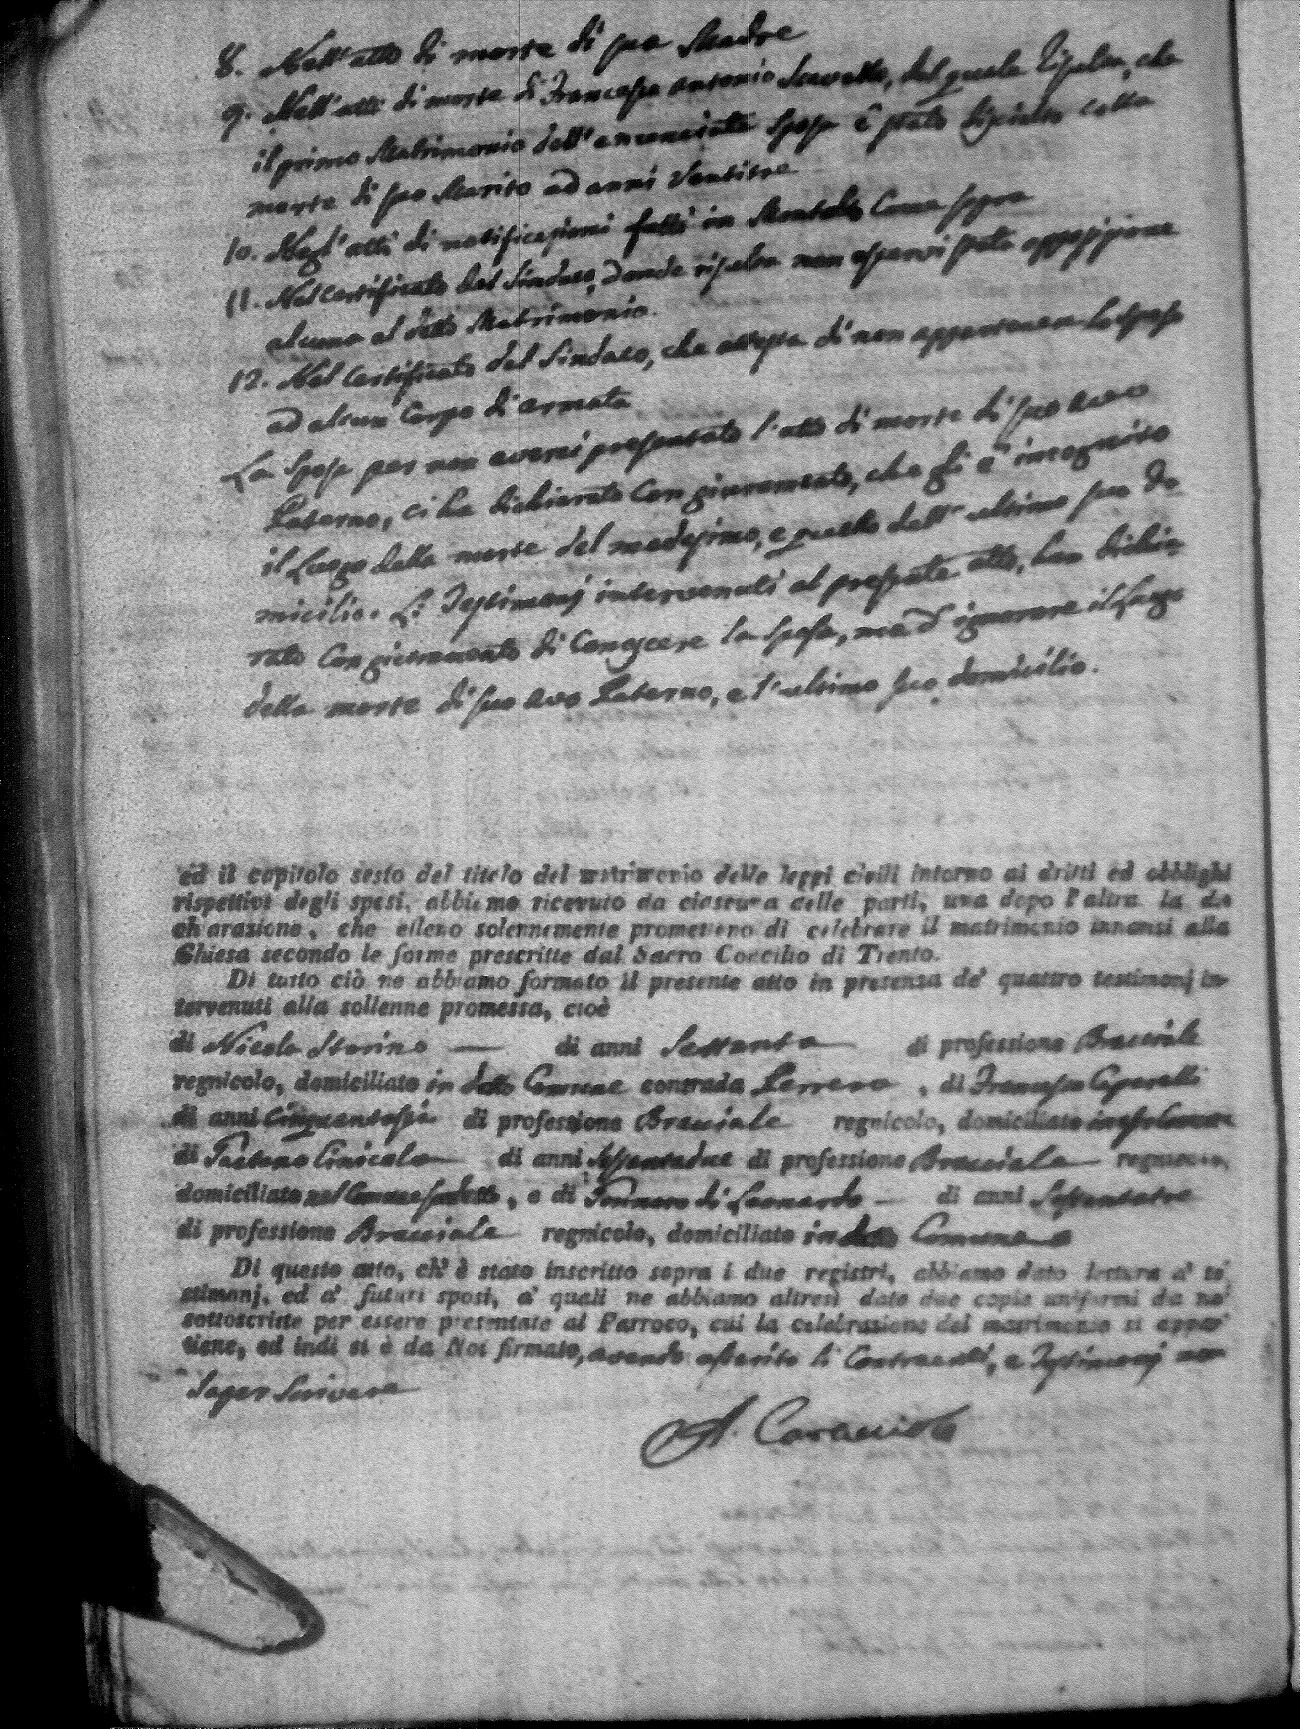 8. Nell'atto di morte di sua Madre
9. Nell'atti di morte di Francesco Antonio, dal quale risulta, che
il primo Matrimonio dell'annunciata Sposa è stato sciolto colla
morte di suo Marito ad anni Ventitre
10. Negl'atti di notificazioni fatti in Montalto Come sopra
11. Nel Certificato del Sindaco, donde risulta non essersi fatta opposizione
alcuna al detto Matrimonio.
12. Nel Certificato del Sindaco, che attesta di non appartenere lo sposo
ad alcun Corpo di armata
La Sposa per non averci presentato l'atto di morte di suo avo
Paterno, ci ha dichiarato Con giuramento, che gli è incognito
il Luogo della morte del medesimo, e quello dell'ultimo suo do
micilio. Li Testimonj intervenuti al presente atto, han dichia
rato Con giuramento di Conoscere la sposa, ma d'ignorare il Luogo
della morte di suo avo Paterno, e l'ultimo suo domicilio.
ed il capitolo sesto del titolo del matrimonio delle leggi civili intorno ai dritti ed obblighi
rispettivi degli sposi, abbiamo ricevuto da ciascuna delle parti, una dopo l'altra la di
chiarazione, che elleno solennemente promettono di celebrare il matrimonio innanzi alla
Chiesa secondo le forme prescritte dal Sacro Concilio di Trento.
Di tutto ciò ne abbiamo formato il presente atto in presenza de' quattro testimonj in-
tervenuti alla sollenne promessa, cioè
di Nicola Storino di anni Settanta di professione Bracciale
regnicolo, domiciliato in detto Comune contrada, di Francesco
di anni Cinquantasei di professione Bracciale regnicolo, domiciliato in esso Comune
di Gaetano di anni Sessantadue di professione Bracciale regnicolo,
domiciliato nel Comune suddetto, e di Tommaso di Leonardo di anni Settantatre
di professione Bracciale regnicolo, domiciliato in detto Comune
Di questo atto, ch'è stato inscritto sopra i due registri, abbiamo dato lettura a' te
stimonj, ed a' futuri sposi, a' quali ne abbiamo altresì date due copie uniformi da noi
sottoscritte per essere presentate al Parroco, cui la celebrazione del matrimonio si appar
tiene, ed indi si è da Noi firmato, avendo asserito li Contraenti, e Testimonj non
Saper Scrivere
A. Caracciolo